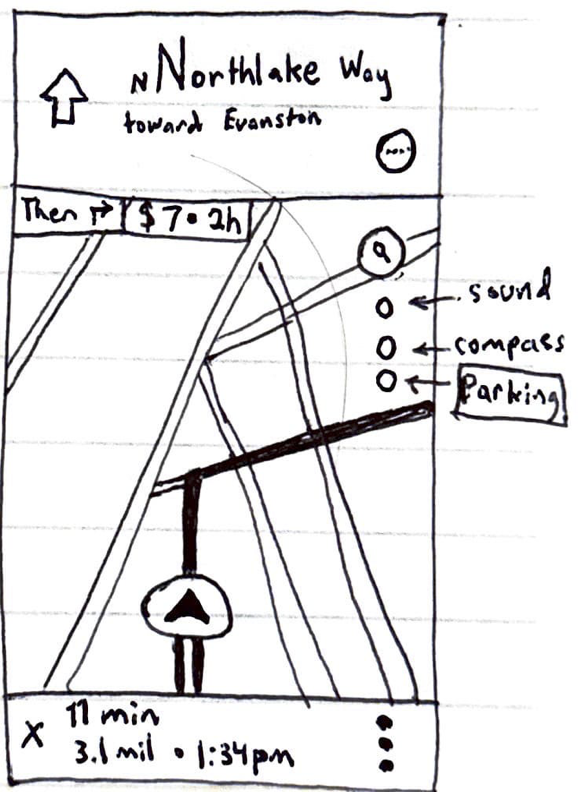 N Northlake Way
toward Evanston
Then
$7 • 2h
sound
compass
Parking
X 11 min
3.1 mil • 1:34pm